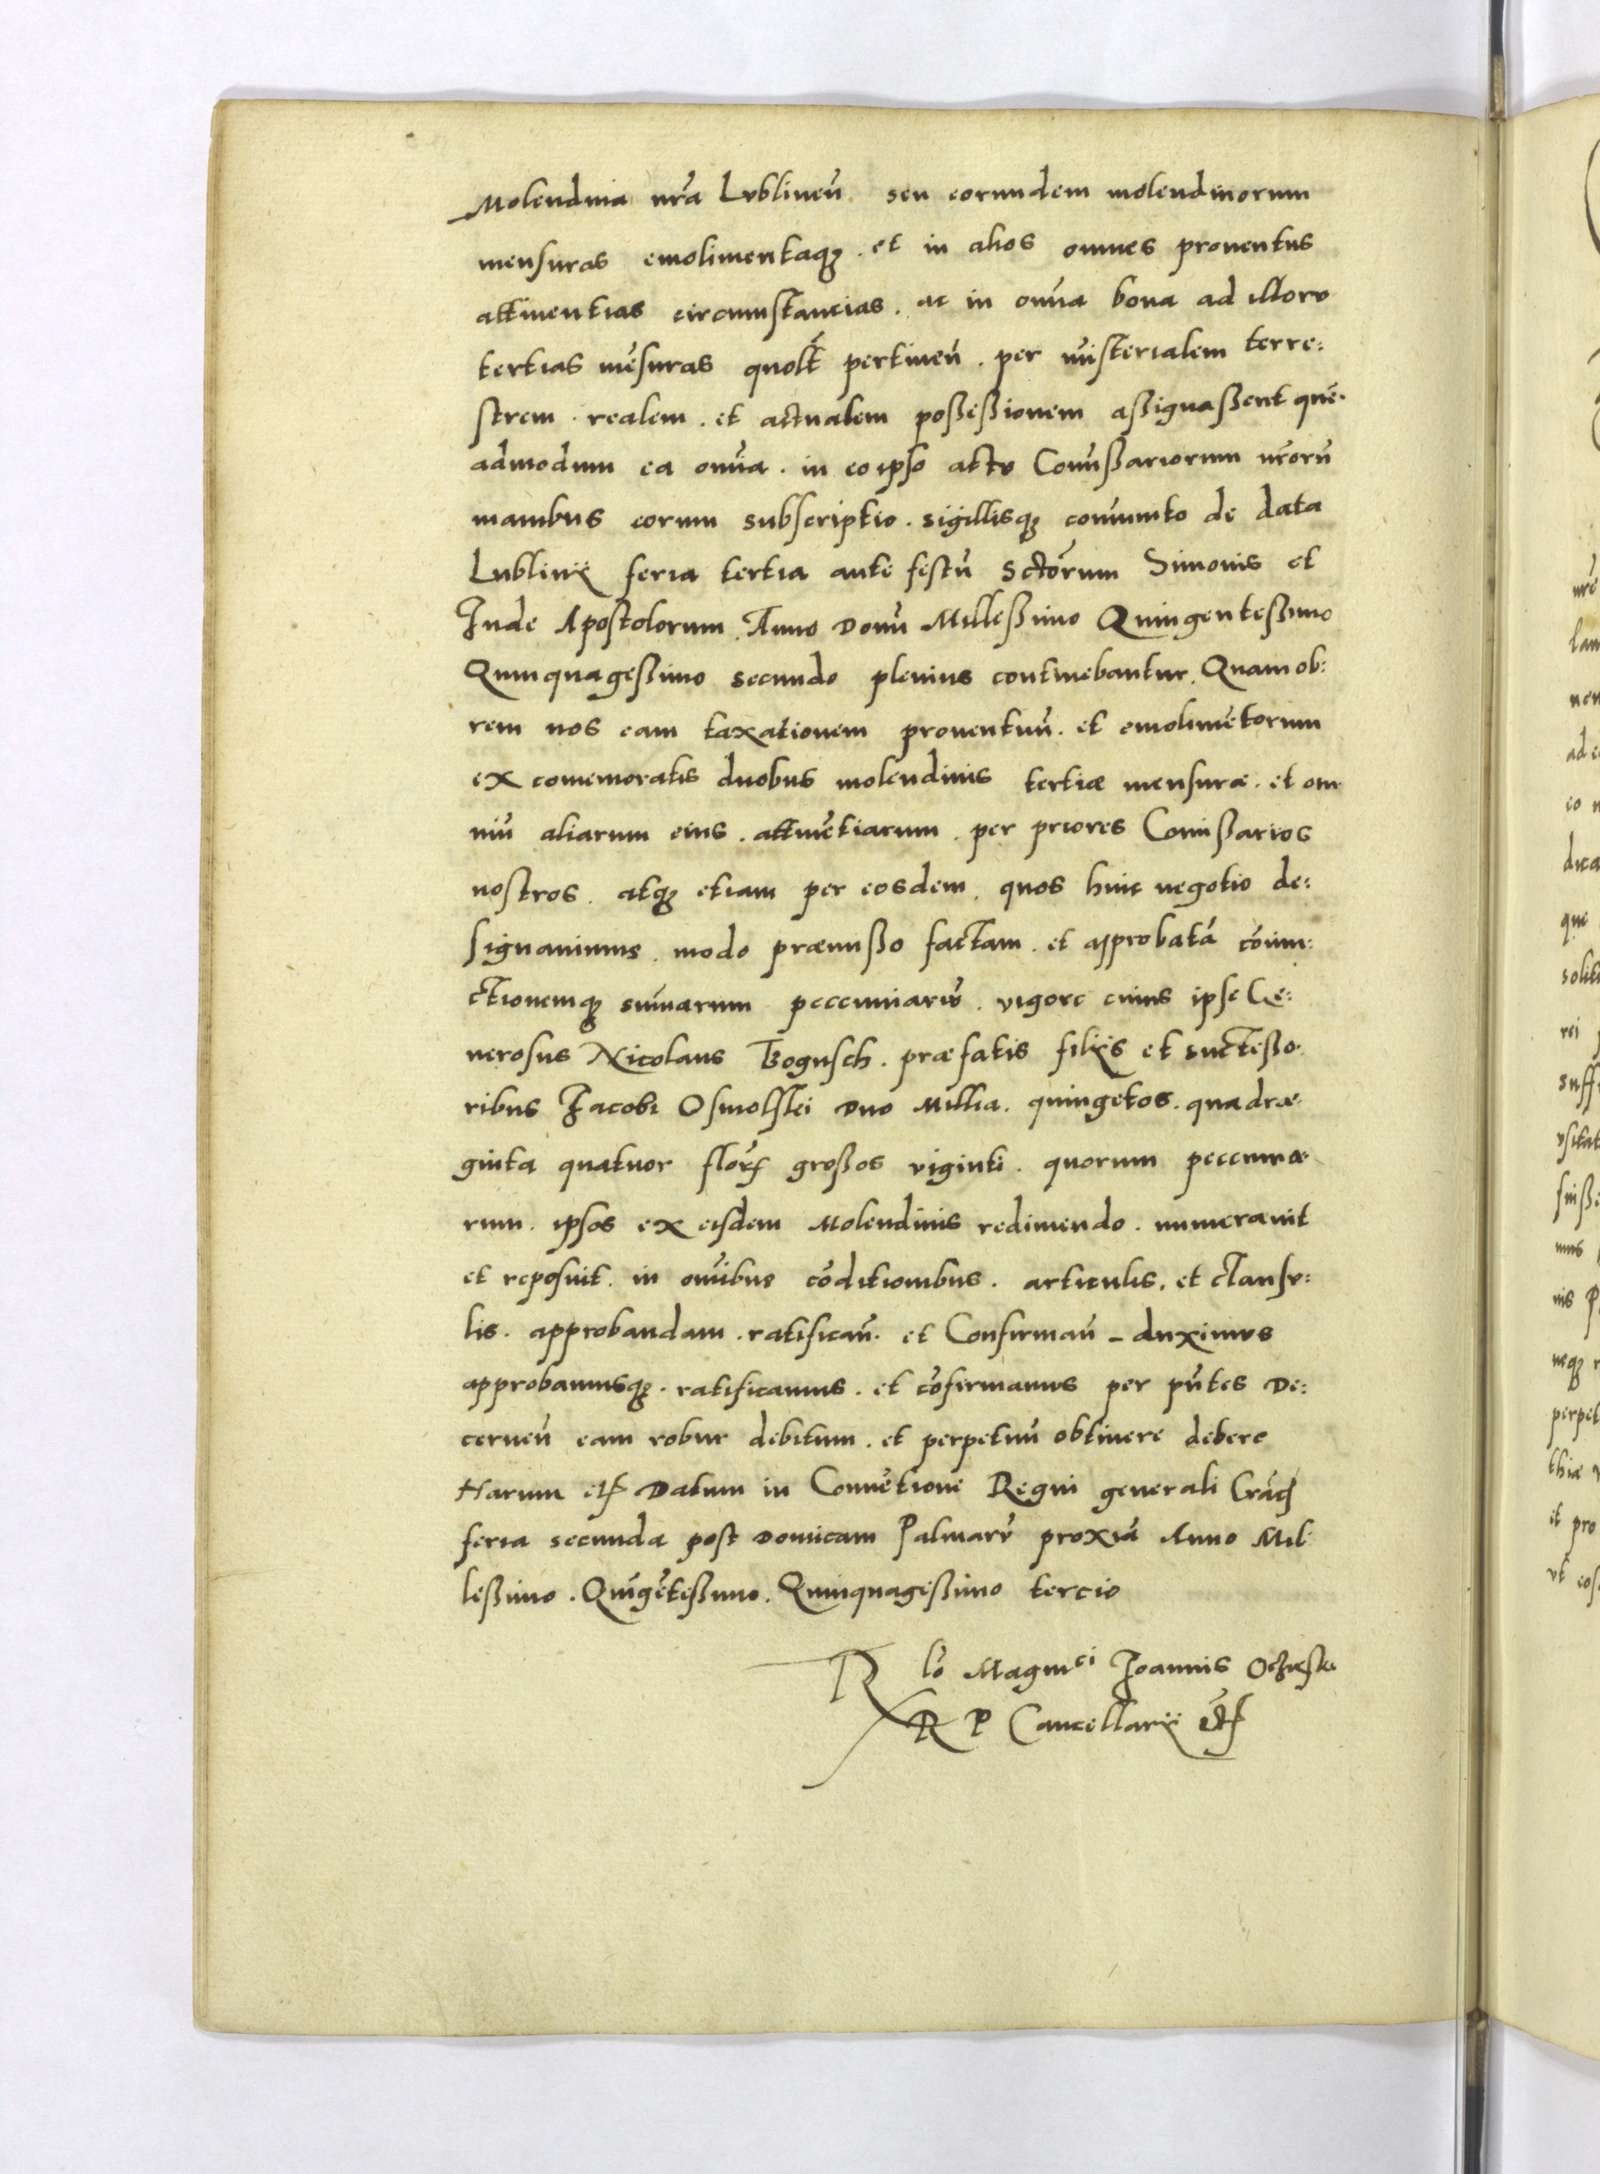 Molendina nr̃a Lublineñ seu eorundem molendinorum
mensuras emolimentaqȝ. et in alios omnes proventus
attinentias circumstancias. ac in om̃ia bona ad illorũ
tertias mẽsuras quoľt pertineñ. per mĩsterialem terre:
strem. realem. et actualem poßeßionem aßignaßent quẽ.
admodum ea om̃ia. in eo ipso acto Com̃ißariorum nr̃orũ
manibus eorum subscriptio. sigillisqȝ com̃unito de data
Lublinij feria tertia ante festũ Sctõrum Simonis et
Iude Apostolorum. Anno Domĩ Milleßimo Quingenteßimo
Quinquageßimo secundo plenius continebantur. Quamob:
rem nos eam taxationem proventuũ. et emolimẽtorum
ex comemoratis duobus molendinis tertiæ mensuræ. et om
niũ aliarum eius. attinẽtiarum. per priores Comißarios
nostros. atqȝ etiam per eosdem. quos huic negotio de:
signavimus. modo præmißo factam. et approbatã cõiun:
ctionemqȝ sum̃arum peccuniarũ. vigore cuius ipse Ge:
nerosus Nicolaus Bogusch. præfatis filijs et succteßo
ribus Jacobi Osmolski Duo Millia. quingẽtos. quadra
ginta quatuor florẽ großos viginti. quorum peccunia
rum. ipsos ex eisdem Molendinis redimendo. numeravit
et reposuit. in om̃ibus cõditionibus. articulis. et clausu:
lis. approbandam. ratificañ. et Confirmañ - duximus
approbamusqȝ. ratificamus. et cõfirmamus per pñtes De:
cerneñ eam robur debitum. et perpetuũ obtinere debere
Harum etc Datum in Convẽtione Regni generali Crac̃
feria secunda post Domĩcam Palmarũ proxĩa Anno Mil
leßimo. Quĩgẽteßimo. Quinquageßimo tercio
Rľo Magnici Joannis Oczieski
R P Cancellarij etc